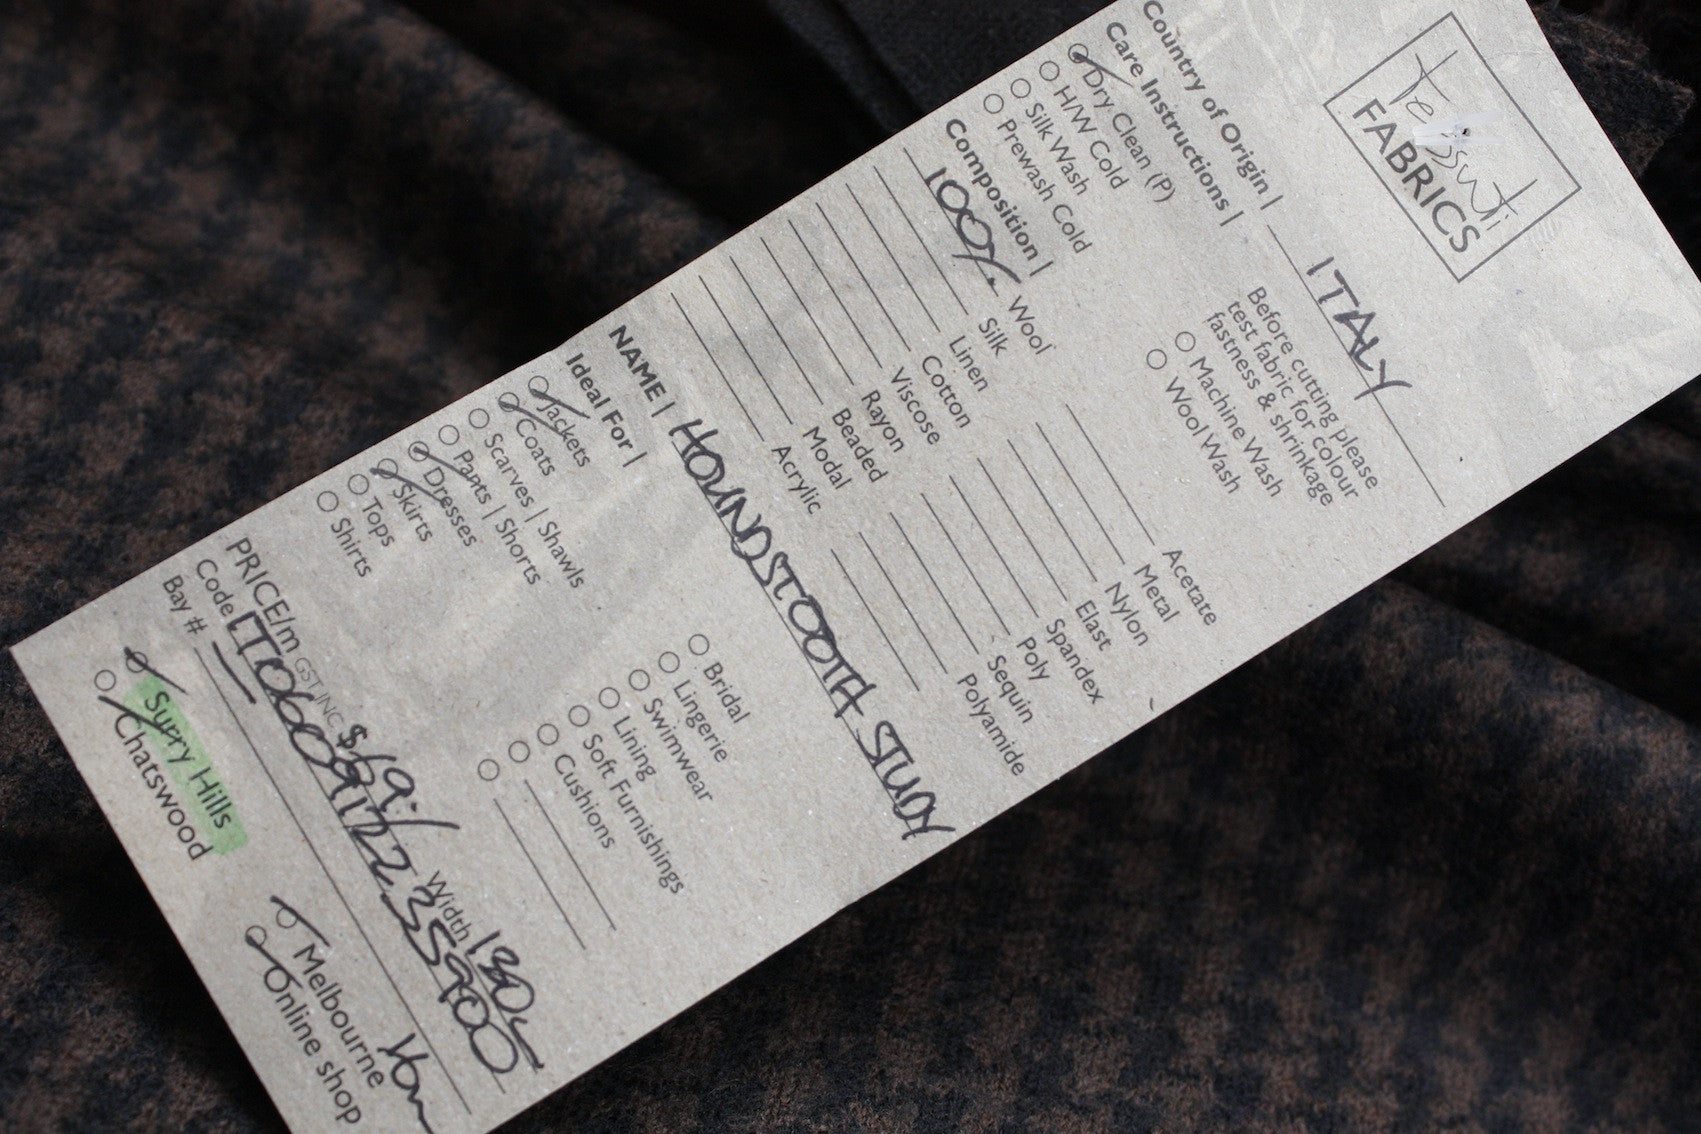 Tessuti
FABRICS
Country of Origin | ITALY
Care Instructions |
Dry Clean (P)
H/W Cold
Silk Wash
Prewash Cold
Before cutting please
test fabric for colour
fastness & shrinkage
Machine Wash
Wool Wash
Composition |
100% Wool
Silk
Linen
Cotton
Viscose
Rayon
Beaded
Modal
Acrylic
Acetate
Metal
Nylon
Elast
Spandex
Poly
Sequin
Polyamide
NAME | HOUNDSTOOTH STUDY
Ideal For |
Jackets
Coats
Scarves | Shawls
Pants | Shorts
Dresses
Skirts
Tops
Shirts
Bridal
Lingerie
Swimwear
Lining
Soft Furnishings
Cushions
PRICE/m GST INC Width 130
Code
Bay #
Surry Hills
Chatswood
Melbourne
Online shop